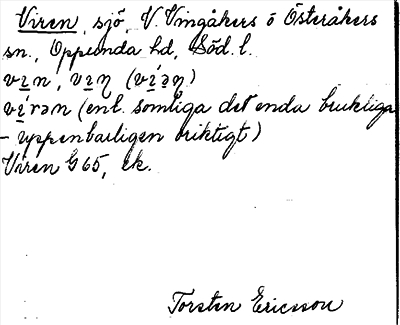 Viren, sjö, V. Vingåkers o Österåkers
sn., Oppunda hd, Söd. l.
vi̲n, vi̲ɳ (ví̲ə̣ɳ)
vi̲rən (enl. somliga det enda brukliga
– uppenbarligen oriktigt)
Viren G 65, ek.
Torsten Ericsson